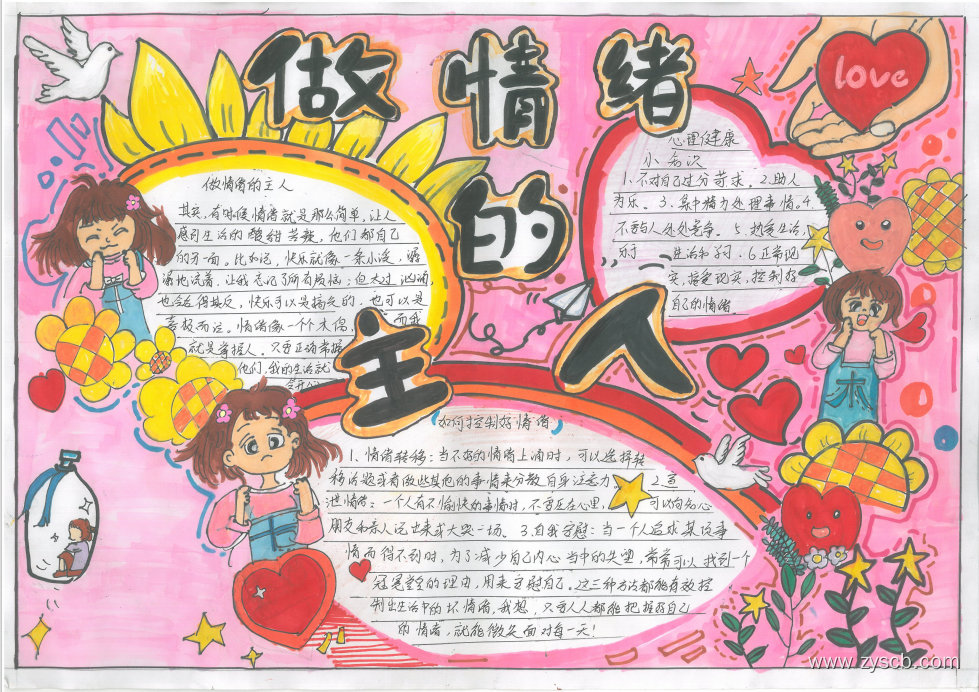 做情绪
的
主人
love
做情绪的主人
其实,有时候情绪就是那么简单,让人
感到生活的酸甜苦辣,他们都自己
的另一面。比如说,快乐就像一条小溪,潺
潺地流着,让我忘记了所有烦恼;但太过汹涌,
也会适得其反,快乐可以是搞笑的,也可以是
喜极而泣。情绪像一个个木偶,而我
就是掌握人。只要正确掌握
他们,我的生活就
会开心
心理健康
小知识
1.不对自己过分苛求。2.助人
为乐。3.集中精力处理事情。4.
不要与人处处竞争。5.热爱生活,
乐于 生活和学习.6.正常现
实,接受现实,控制好
自己的情绪.
如何控制好情绪
1、情绪转移:当不好的情绪上涌时,可以选择转
移话题或者做些其他的事情来分散自身注意力 2.宣
泄情绪:一个人有不愉快的事情时,不要压在心里, 可以向知心
朋友和亲人说出来或大哭一场。3.自我安慰:当一个人追求某项事
情而得不到时,为了减少自己内心当中的失望,常常可以找到一个
冠冕堂皇的理由,用来安慰自己。这三种方法都能有效控
制出生活中的坏情绪,我想,只要人人都能把握好自己
的情绪,就能微笑面对每一天!
www.zyscb.com